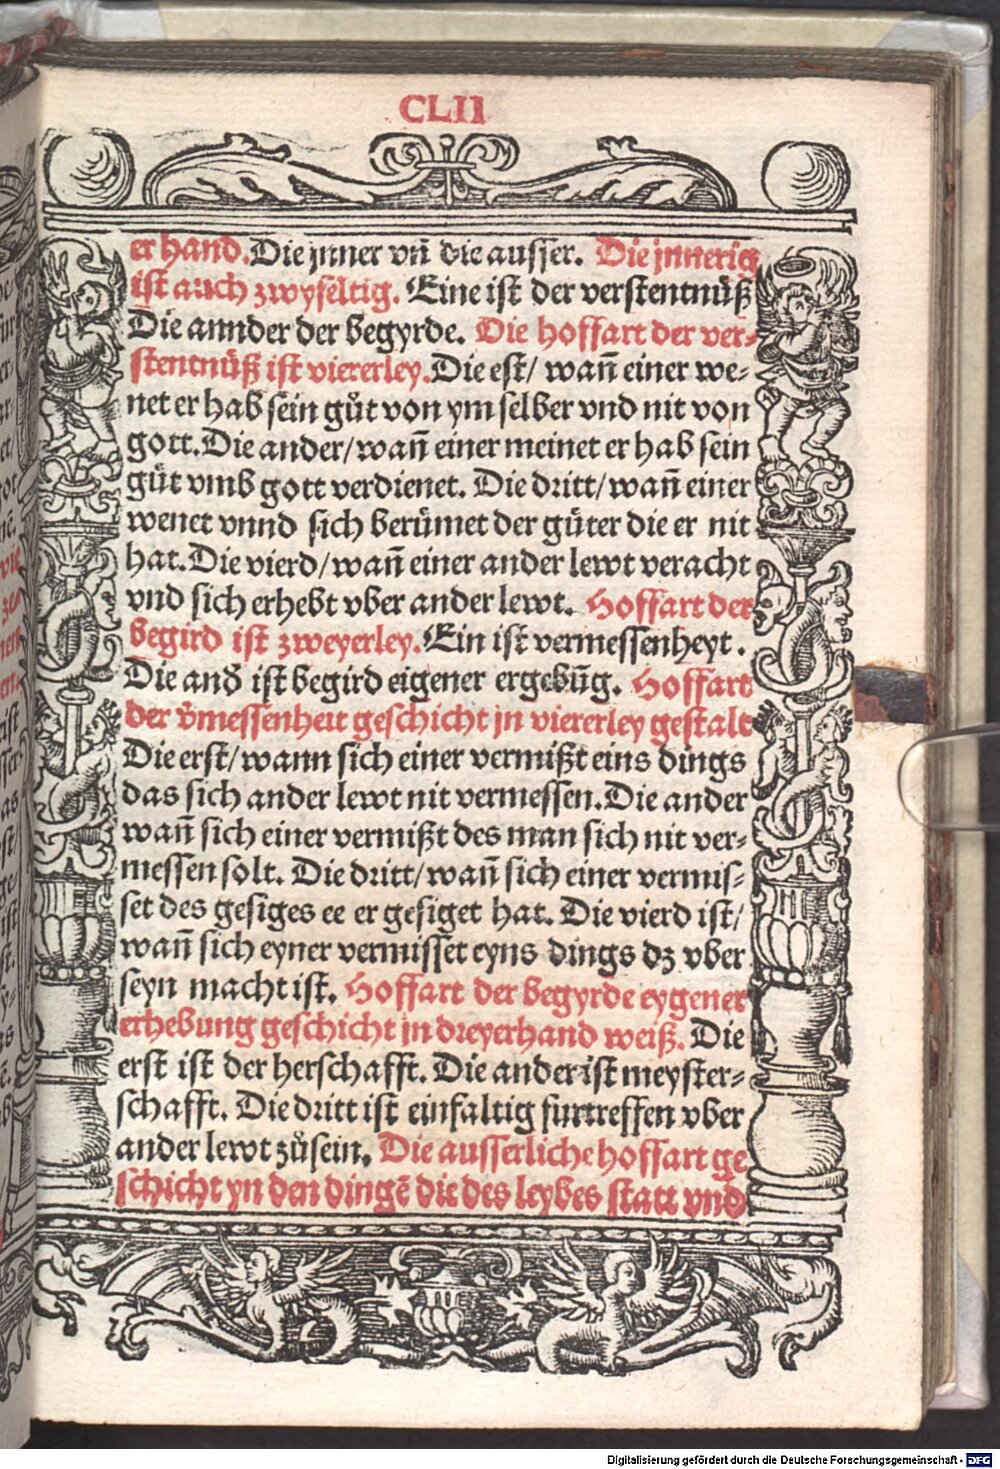 CLII
er hand. Die jnner vn̄ die ausser. Die jnnerig
ist auch zwyfeltig. Eine ist der verstentnuͤß
Die annder der begyrde. Die hoffart der ver-
stentnuͤß ist viererley. Die est/ wan̄ einer we-
net er hab sein guͤt von ym selber vnd nit von
gott. Die ander/ wan̄ einer meinet er hab sein
guͤt vmb gott verdienet. Die dritt/ wan̄ einer
wenet vnnd sich beruͤmet der guͤter die er nit
hat. Die vierd/ wan̄ einer ander lewt veracht
vnd sich erhebt vber ander lewt. Hoffart der
begird ist zweyerley. Ein ist vermessenheyt.
Die and̕ ist begird eigener ergebūg. Hoffart
der v̕messenheit geschicht in viererley gestalt
Die erst/ wann sich einer vermißt eins dings
das sich ander lewt nit vermessen. Die ander
wan̄ sich einer vermißt des man sich nit ver-
messen solt. Die dritt/ wan̄ sich einer vermis-
set des gesiges ee er gesiget hat. Die vierd ist/
wan̄ sich eyner vermisset eyns dings dz vber
seyn macht ist. Hoffart der begyrde eygener
erhebung geschicht in dreyerhand weiß. Die
erst ist der herschafft. Die ander ist meyster-
schafft. Die dritt ist einfaltig furtreffen vber
ander lewt zuͦsein. Die ausserliche hoffart ge
schicht yn den dingē die des leybes statt vnd
Digitalisierung gefördert durch die Deutsche Forschungsgemeinschaft - DFG